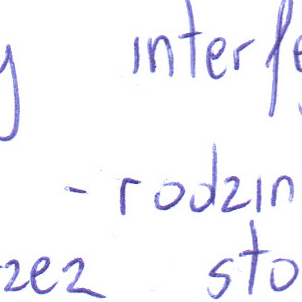 y interfe
- rodzin
rzez sto